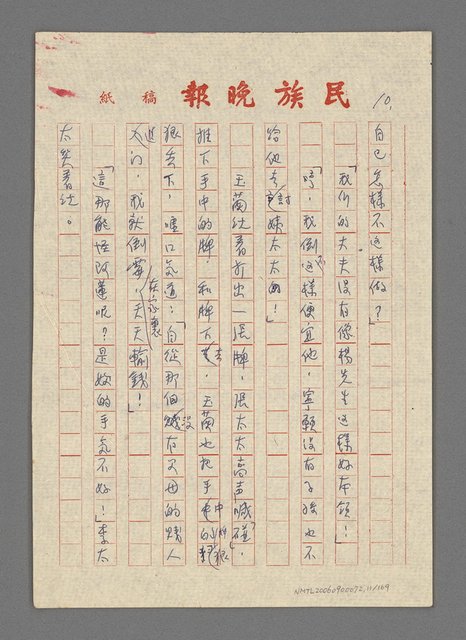 10.
民族晚報 稿紙
自己怎樣不這樣做？」
「我們的丈夫沒有像楊先生這樣好本領！」
「哼，我倒不這樣便宜他，寧願沒有子孫也不
給他去討姨太太的！」
玉蘭說着打出一張牌，張太太高声喊「碰」，
推下手中的牌，私牌下去，玉蘭也把手中的牌狠
狠丟下，嘆口氣道：「自從那個沒有父母的賤人
進門，我就倒霉，在家裏天天輸錢！」
「這那能怪改蓮呢？是妳的手氣不好！」李太
太笑着說。
NMTL20060900072, 11/109